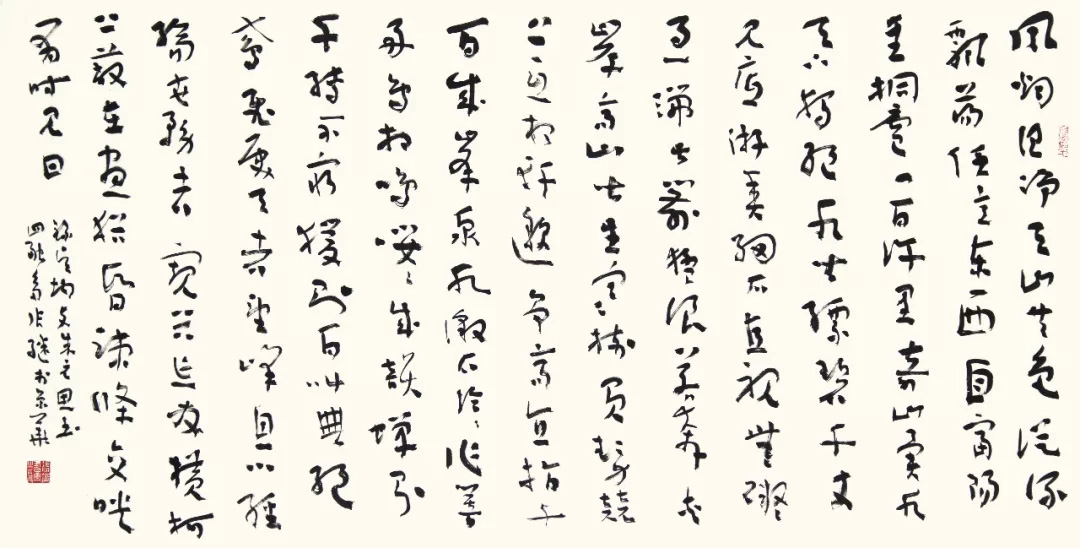 風烟俱淨天山共色從流
飄蕩任意東西自富陽
至桐廬一百許里奇山異水
天下獨絕水皆縹碧千丈
見底游魚細石直視無礙
急湍甚箭猛浪若奔夾
岸高山皆生寒樹負勢競
上互相軒邈爭高直指千
百成峰泉水激石泠泠作響
好鳥相鳴嚶嚶成韻蟬則
千轉不窮猿則百叫無絕
鳶飛戾天者望峰息心經
綸世務者窺谷忘反橫柯
上蔽在晝猶昏疏條交映
有時見日
錄吳均與朱元思書
四融齋張繼於京華